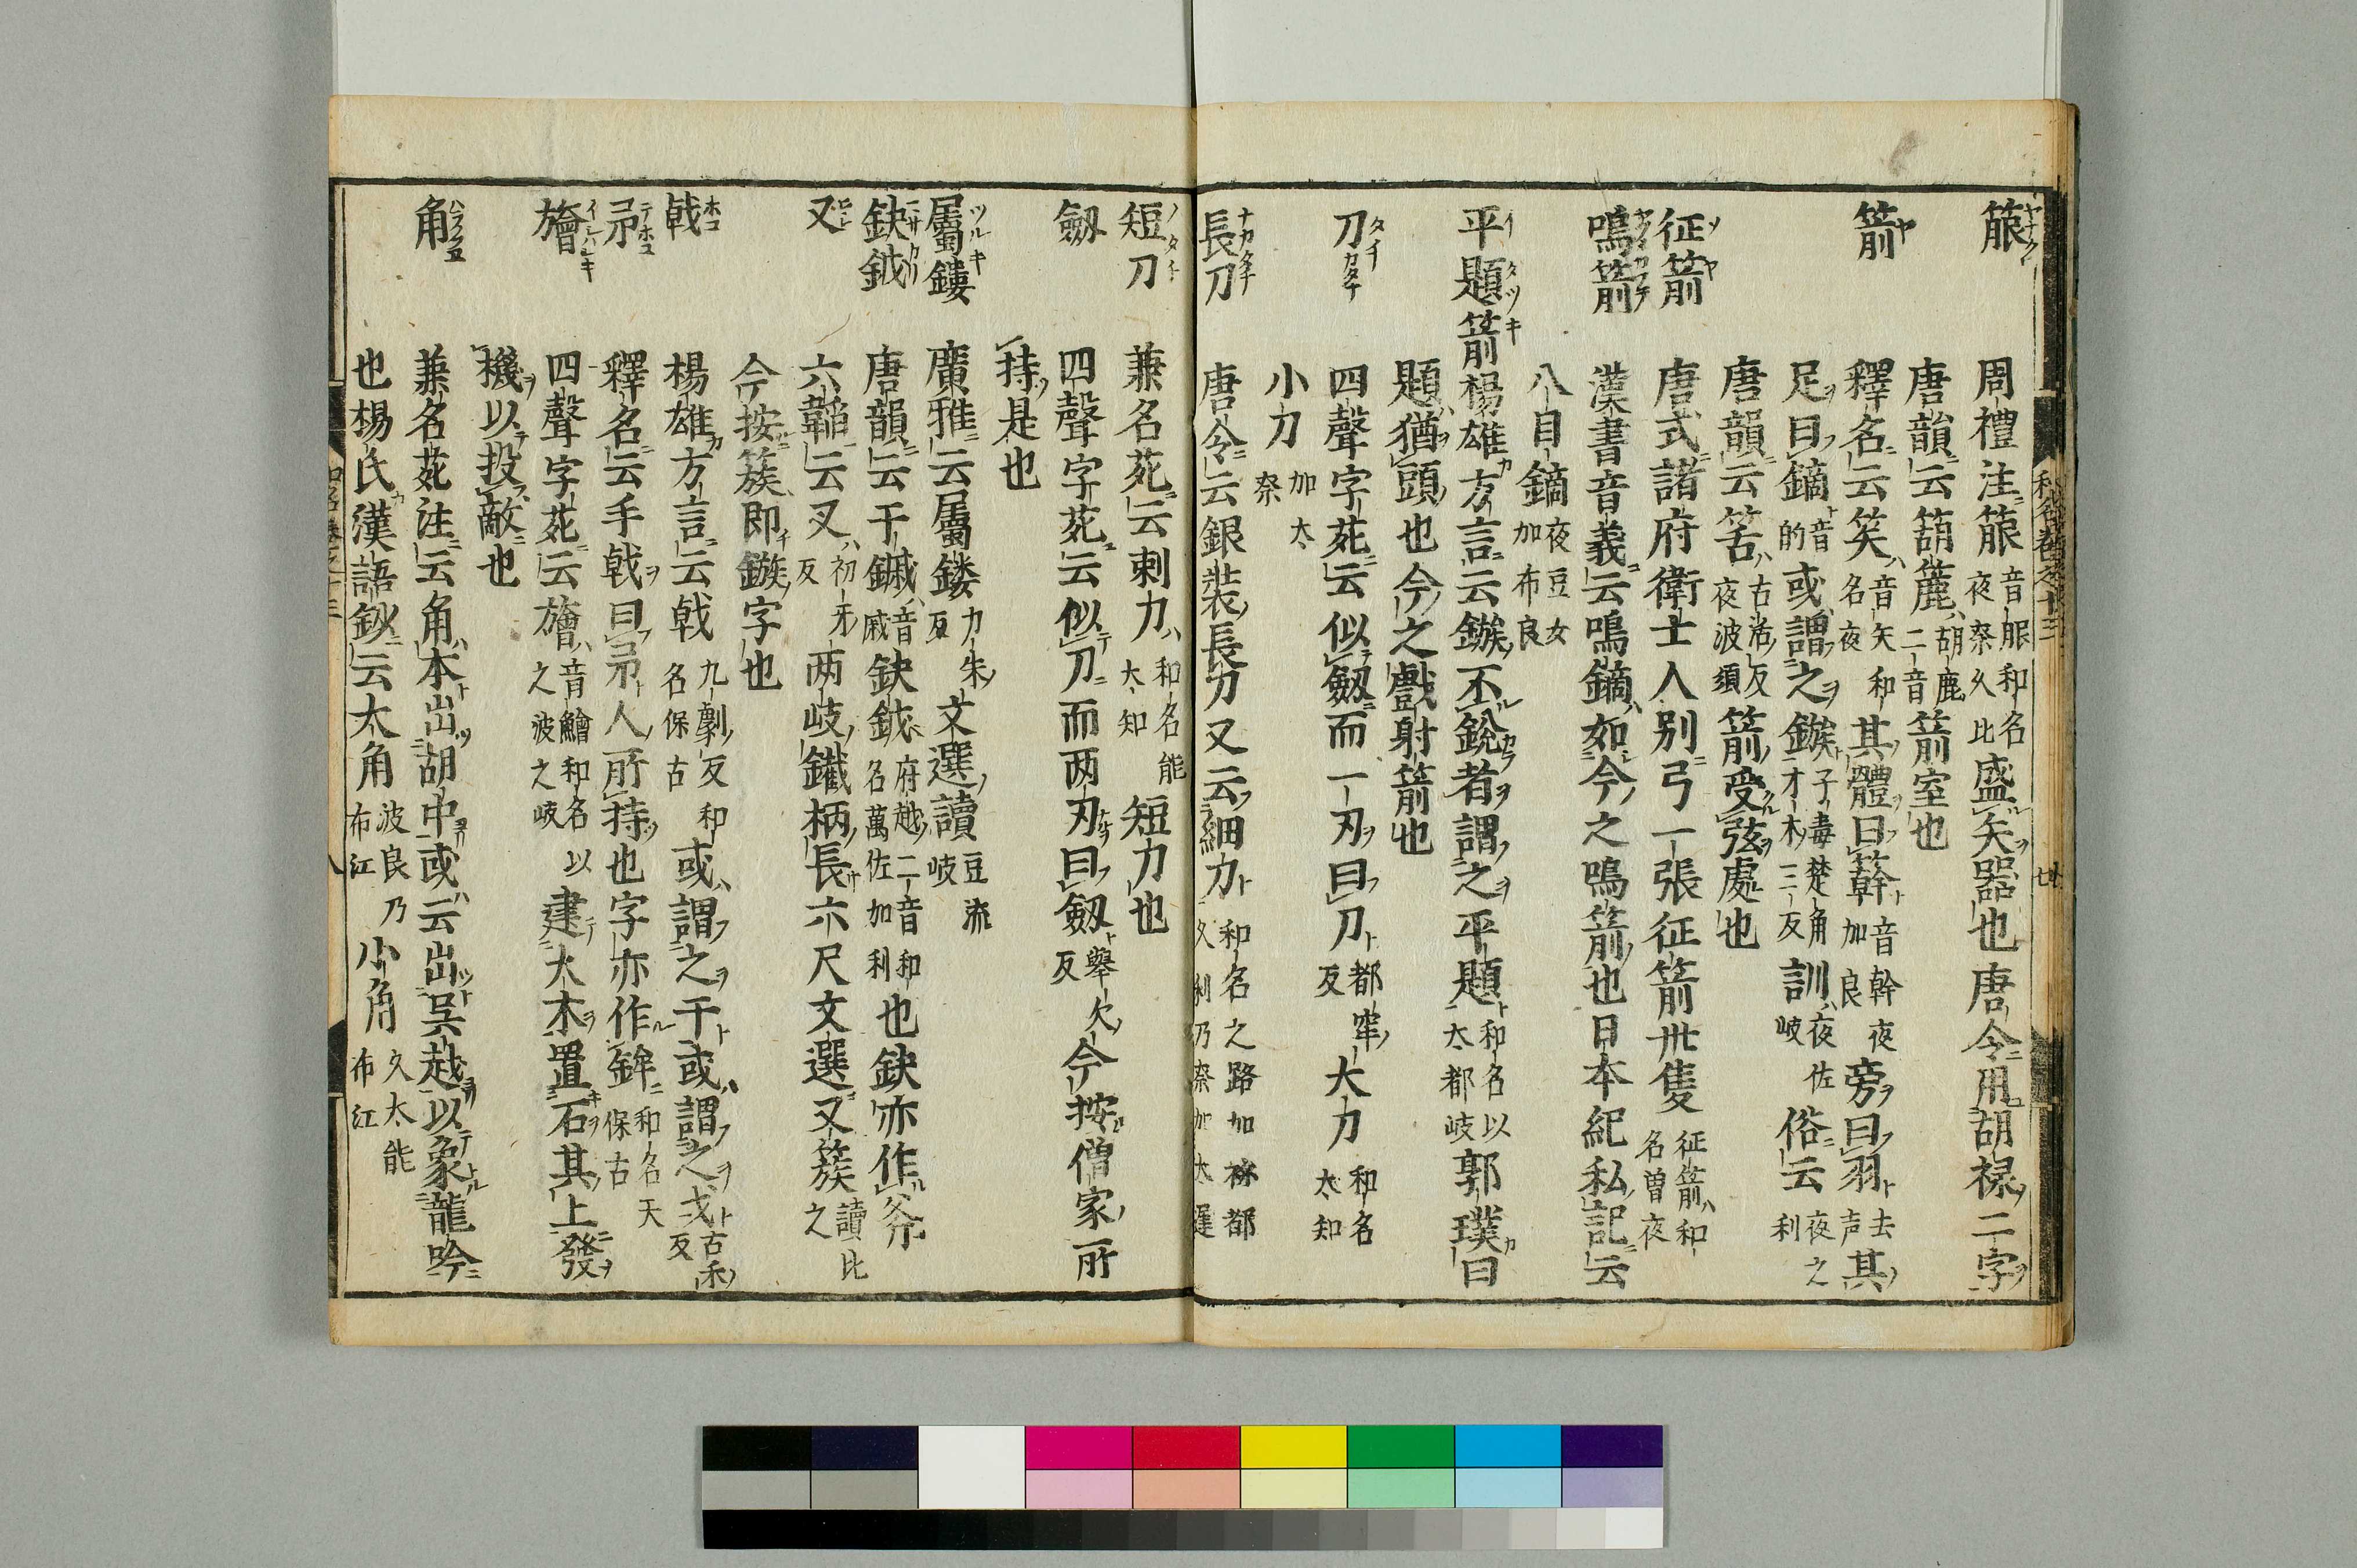 箙 周禮注箙音服和名夜奈久比盛矢器也唐令用胡祿二字
唐韻云箶簏胡鹿二音箭室也
箭 釋名云笶音矢和名夜其體曰簳音幹夜加良旁曰羽去声其
足曰鏑音的或謂之鏃子毒楚角才木三反訓夜佐岐俗云夜之利
唐韻云筈古活反夜波須箭受弦處也
征箭 唐式諸府衛士人別弓一張征箭卅隻征箭和名曽夜
鳴箭 漢書音義云鳴鏑如今之鳴箭也日本紀私記云
八目鏑夜豆女加布良
平題箭 楊雄方言云鏃不銳者謂之平題和名以太都岐郭璞曰
題猶頭也今之戲射箭也
刀 四聲字苑云似劔而一刃曰刀都窂反大刀和名太知
小刀加太奈
長刀 唐令云銀装長刀又云細刀和名之路加祢都久利乃奈加太遲
短刀 兼名苑云刺刀和名能太知短刀也
劔 四聲字苑云似刀而两刃曰劔擧欠反今按僧家所
持是也
屬鏤 廣雅云屬鏤力朱反文選讀豆流岐
鈌鉞 唐韻云干鏚音戚鈌鉞府越二音和名萬佐加利也鈌亦作斧
叉 六韜云叉初牙反两岐鐵柄長六尺文選叉簇讀比之
今按簇即鏃字也
戟 楊雄方言云戟九劇反和名保古或謂之干或謂之戈古禾反
𢎭 釋名云手戟曰𢎭人所持也字亦作鉾和名天保古
旝 四聲字苑云旝音鱠和名以之波之岐建大木置石其上發
機以投敵也
角 兼名苑注云角本出胡中或云出呉越以象龍吟
也楊氏漢語鈔云大角波良乃布江小角久太能布江